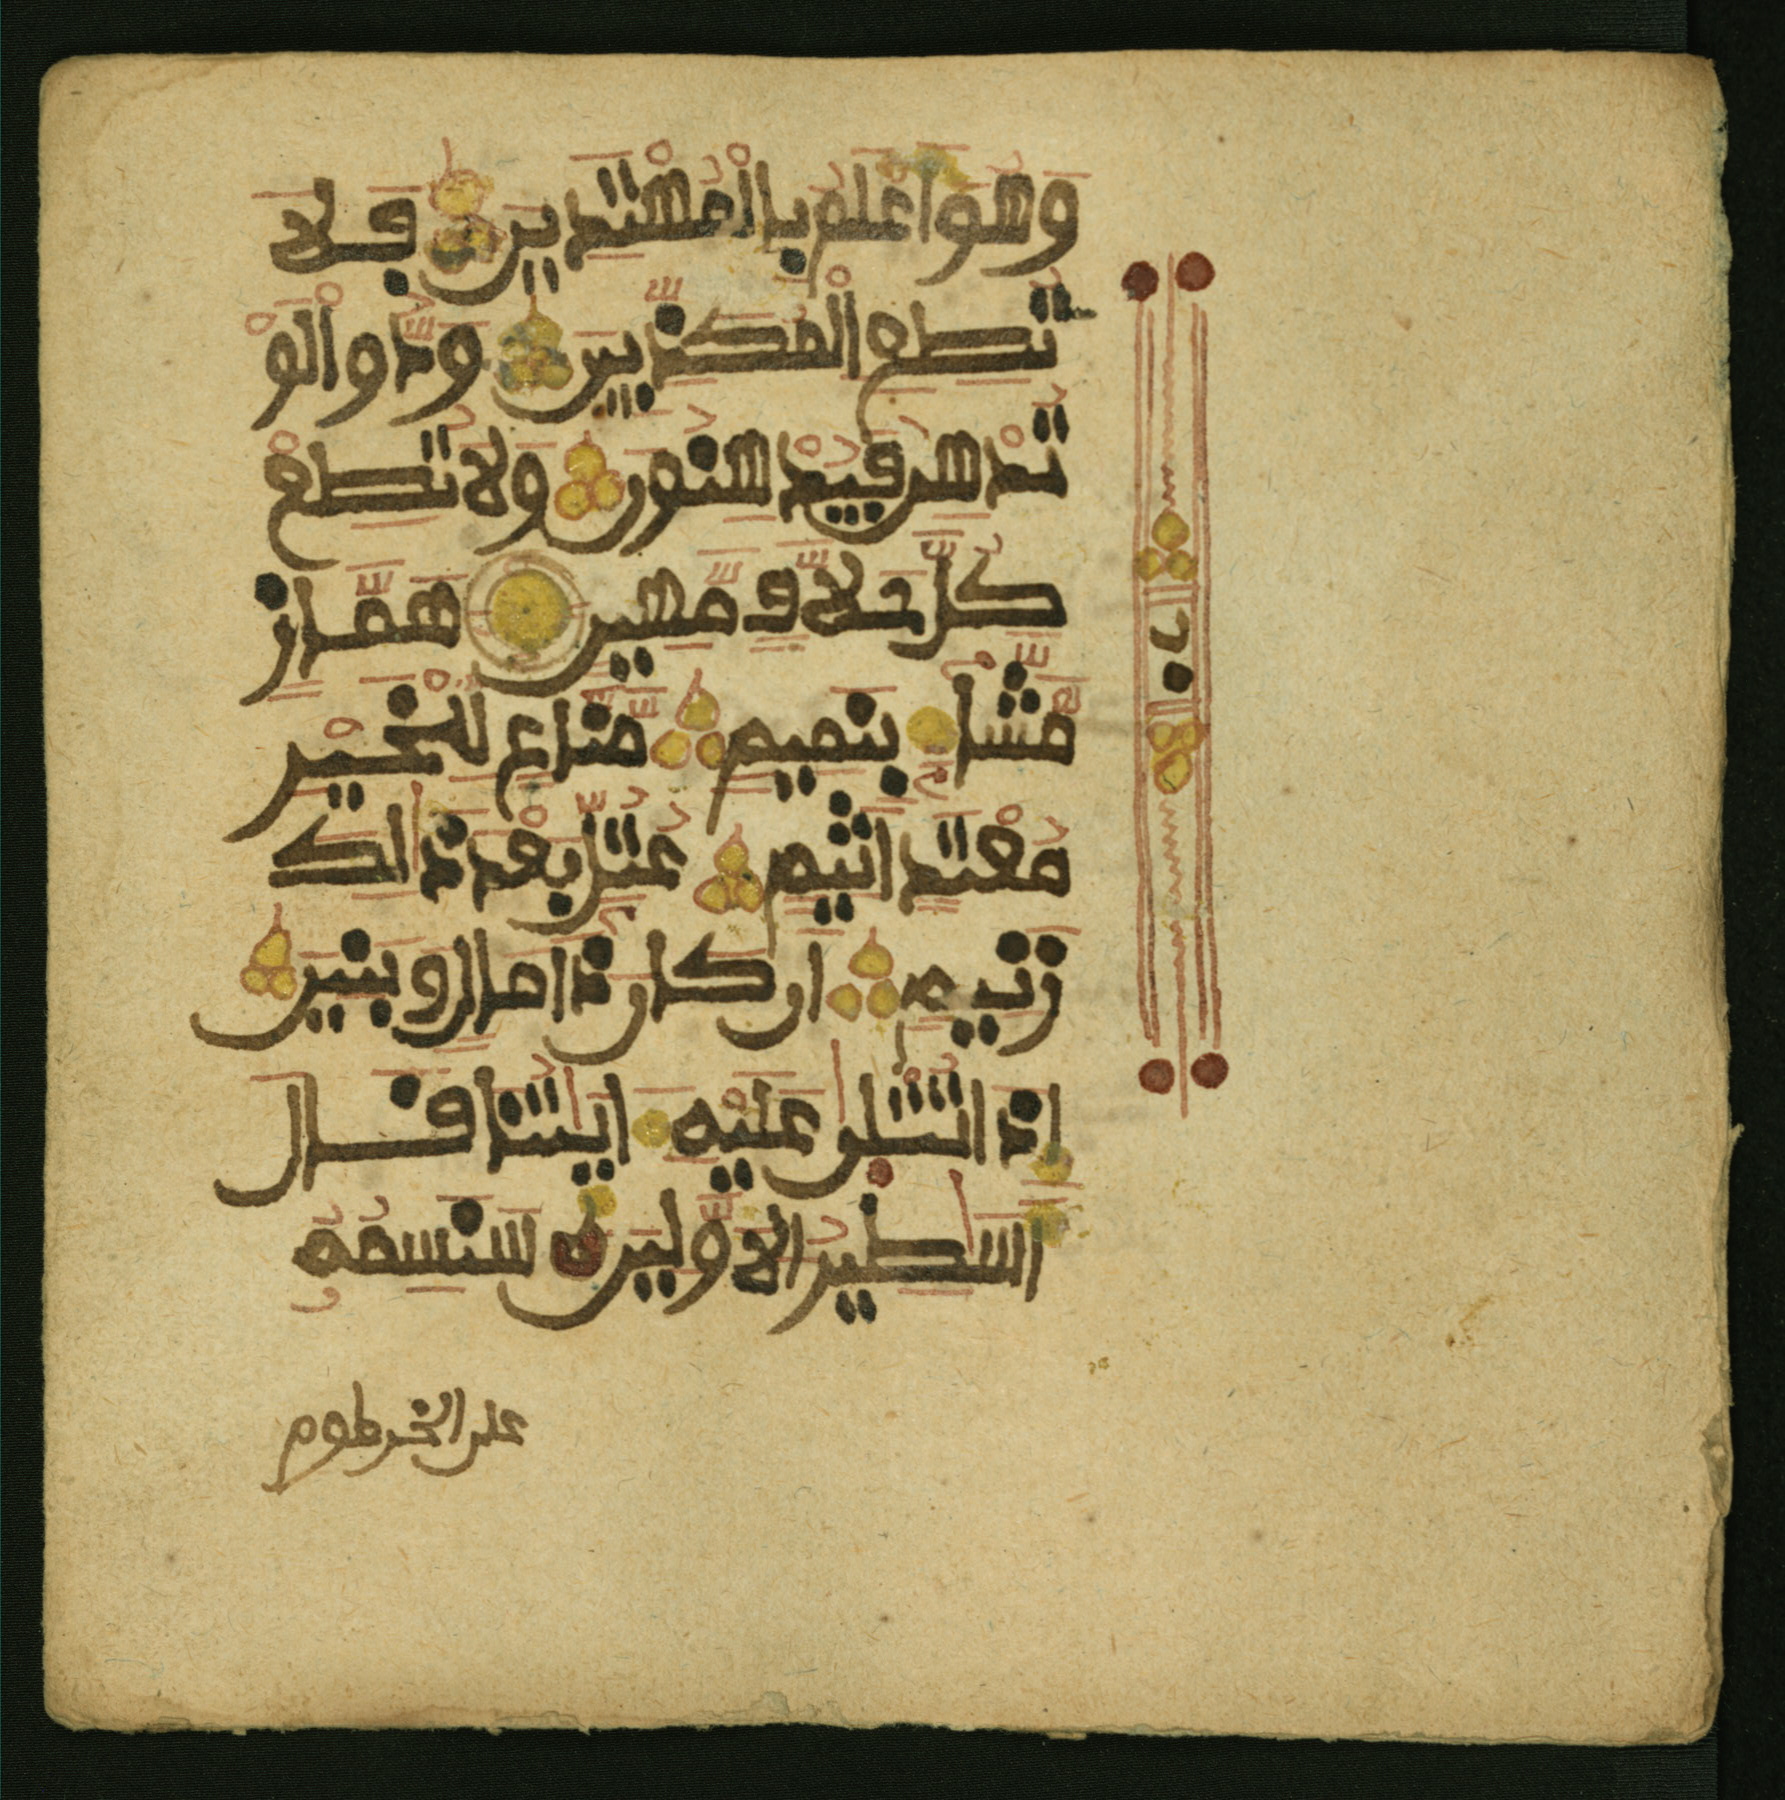 وَهُوَ أَعْلَمُ بِالْمُهْتَدِينَ فَلَا
تُطِعِ الْمُكَذِّبِينَ وَدُّوا لَوْ
تُدْهِنُ فَيُدْهِنُونَ وَلَا تُطِعْ
كُلَّ حَلَّافٍ مَّهِينٍ هَمَّازٍ
مَّشَّاءٍ بِنَمِيمٍ مَّنَّاعٍ لِّلْخَيْرِ
مُعْتَدٍ أَثِيمٍ عُتُلٍّ بَعْدَ ذَٰلِكَ
زَنِيمٍ أَن كَانَ ذَا مَالٍ وَبَنِينَ
إِذَا تُتْلَىٰ عَلَيْهِ ءَايَٰتُنَا قَالَ
أَسَٰطِيرُ الْأَوَّلِينَ سَنَسِمُهُ
على الخرطوم